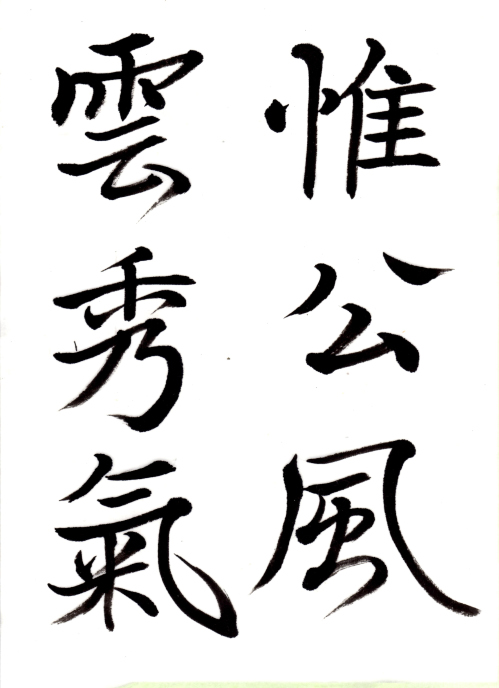 惟公風
雲秀氣